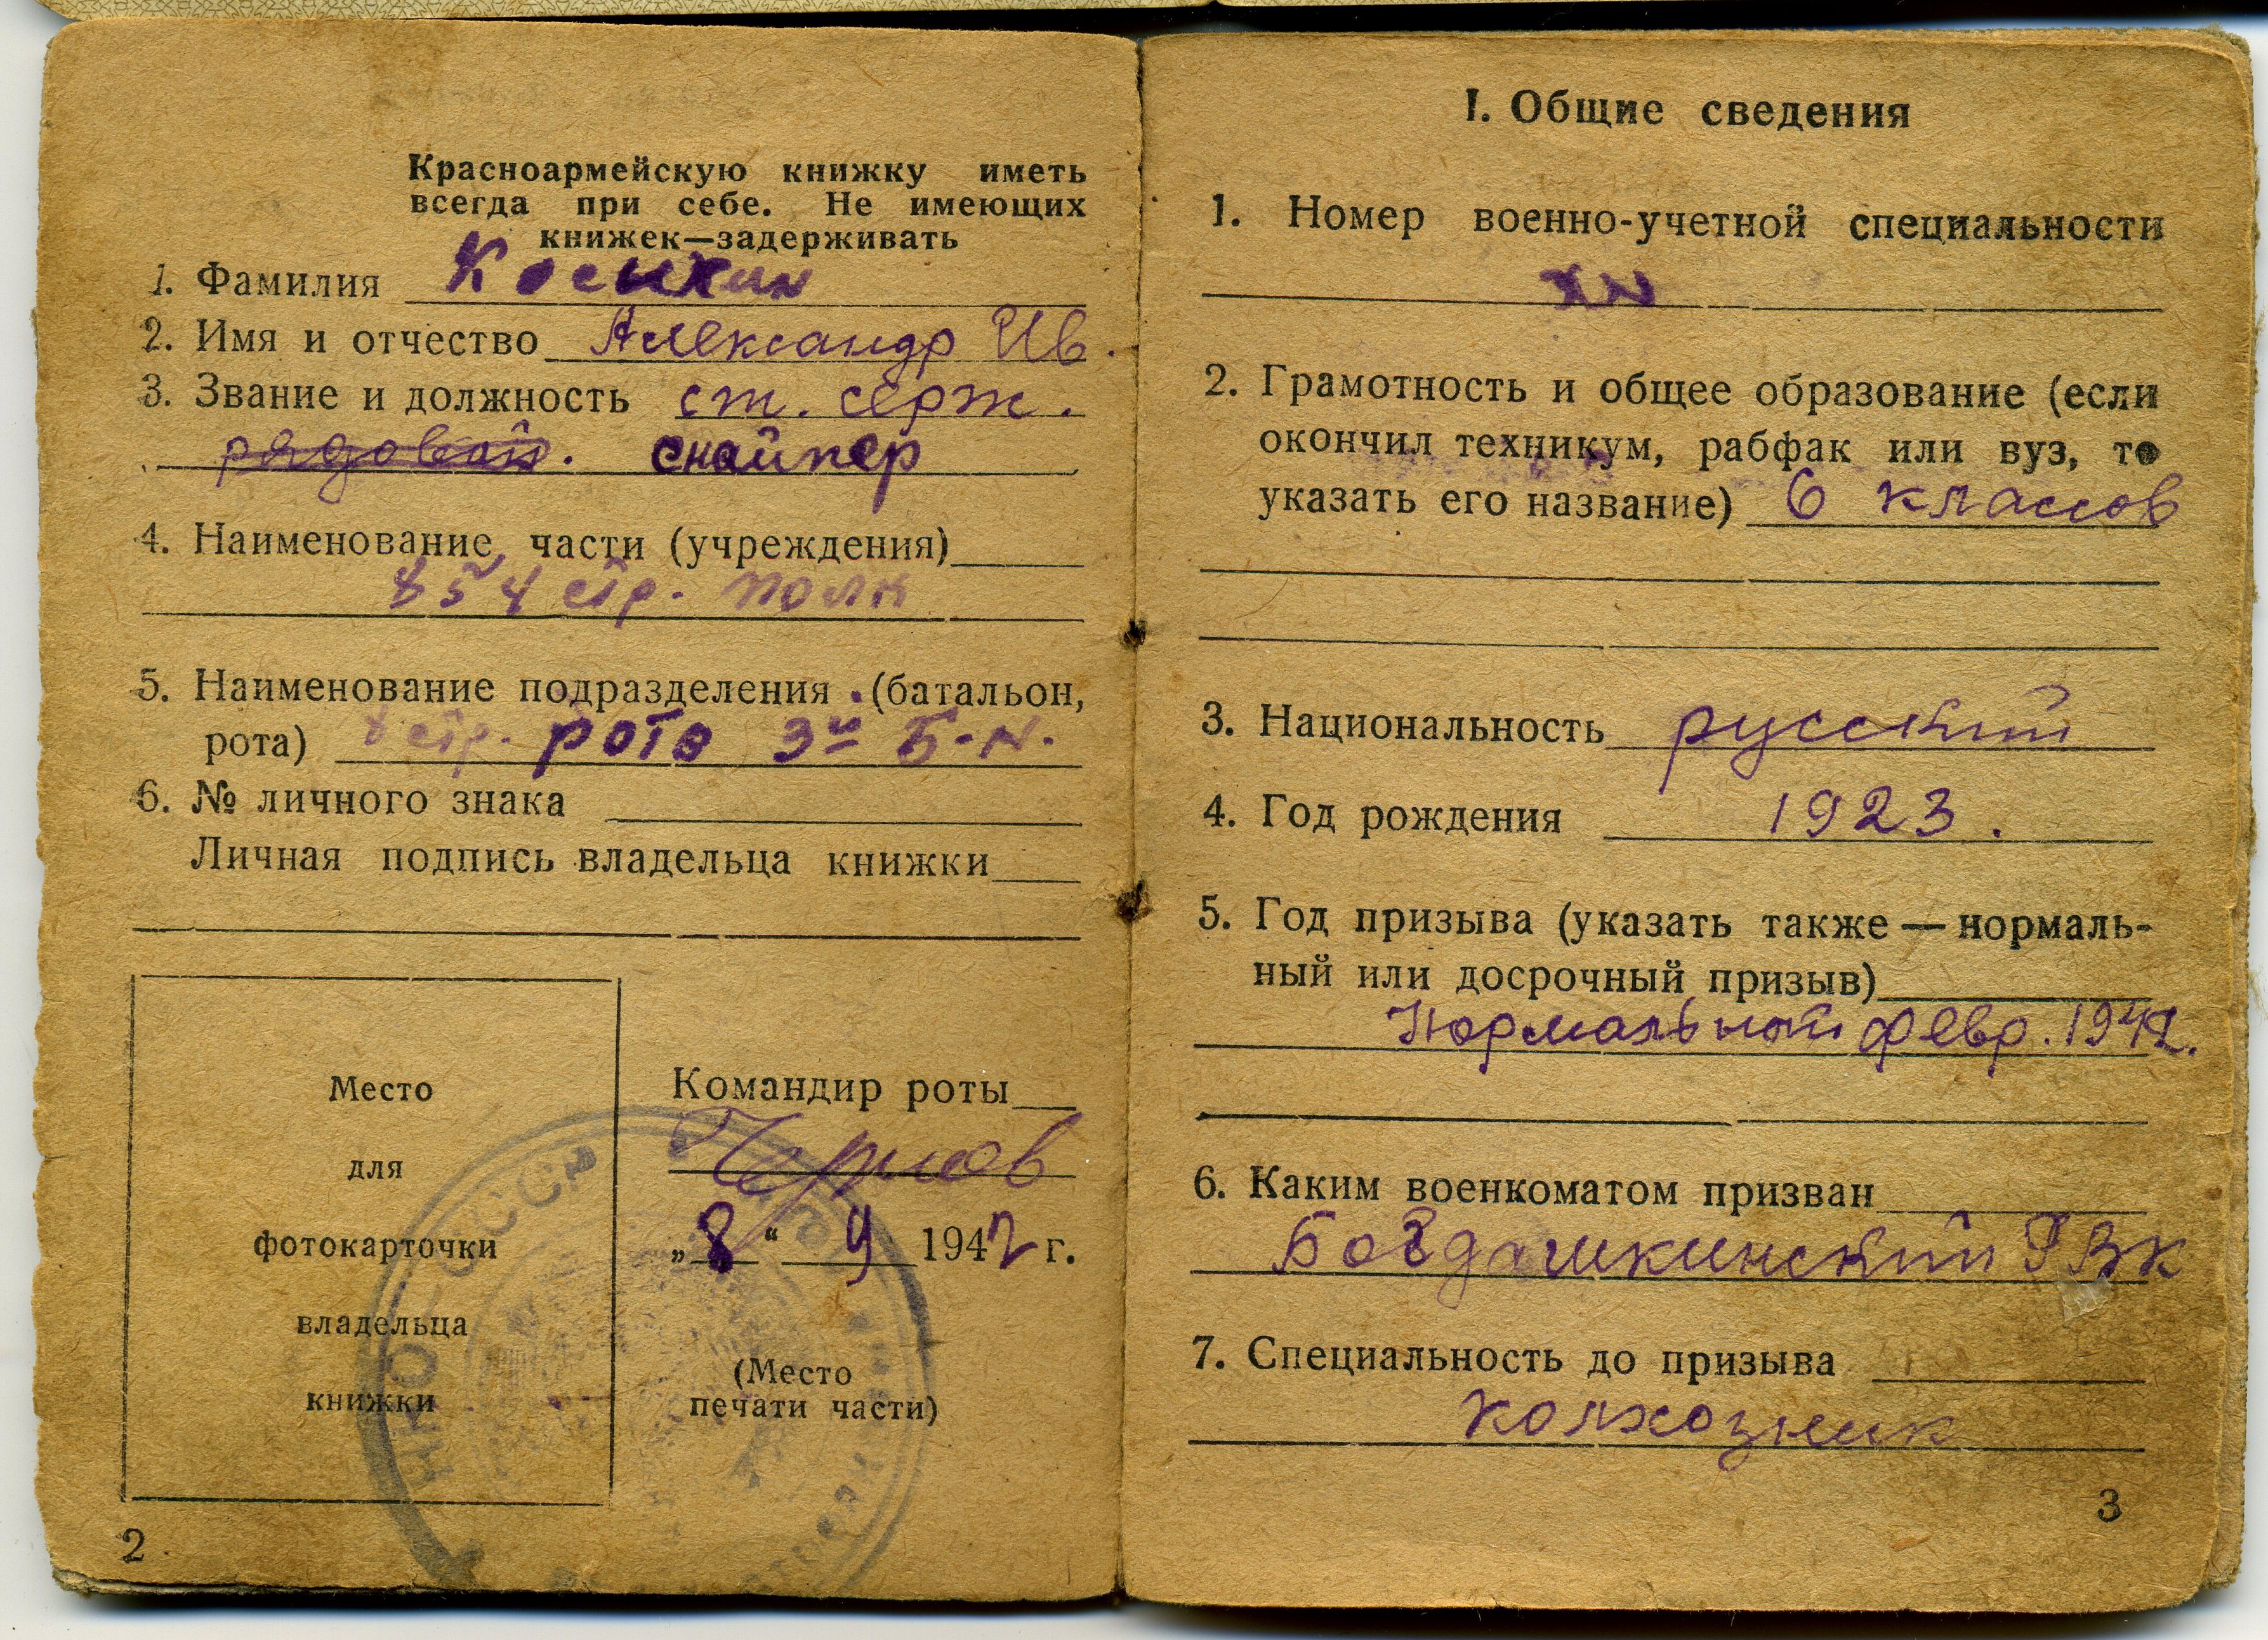 Красноармейскую книжку иметь
всегда при себе. Не имеющих
книжек—задерживать
1. Фамилия Косыхин
2. Имя и отчество Александр Ив.
3. Звание и должность ст. серж.
рядовой. снайпер
4. Наименование части (учреждения)
854 стр. полк
5. Наименование подразделения (батальон,
рота) 8 стр. рота 3й Б-н.
6. № личного знака
Личная подпись владельца книжки
Место
для
фотокарточки
владельца
книжки
Командир роты
Чернов
„8“ 9 1942 г.
(Место
печати части)
НКО-СССР
2
I. Общие сведения
1. Номер военно-учетной специальности
2. Грамотность и общее образование (если
окончил техникум, рабфак или вуз, то
указать его название) 6 классов
3. Национальность русский
4. Год рождения 1923.
5. Год призыва (указать также — нормаль-
ный или досрочный призыв)
Нормальный февр. 1942.
6. Каким военкоматом призван
Богдашкинский РВК
7. Специальность до призыва
колхозник
3